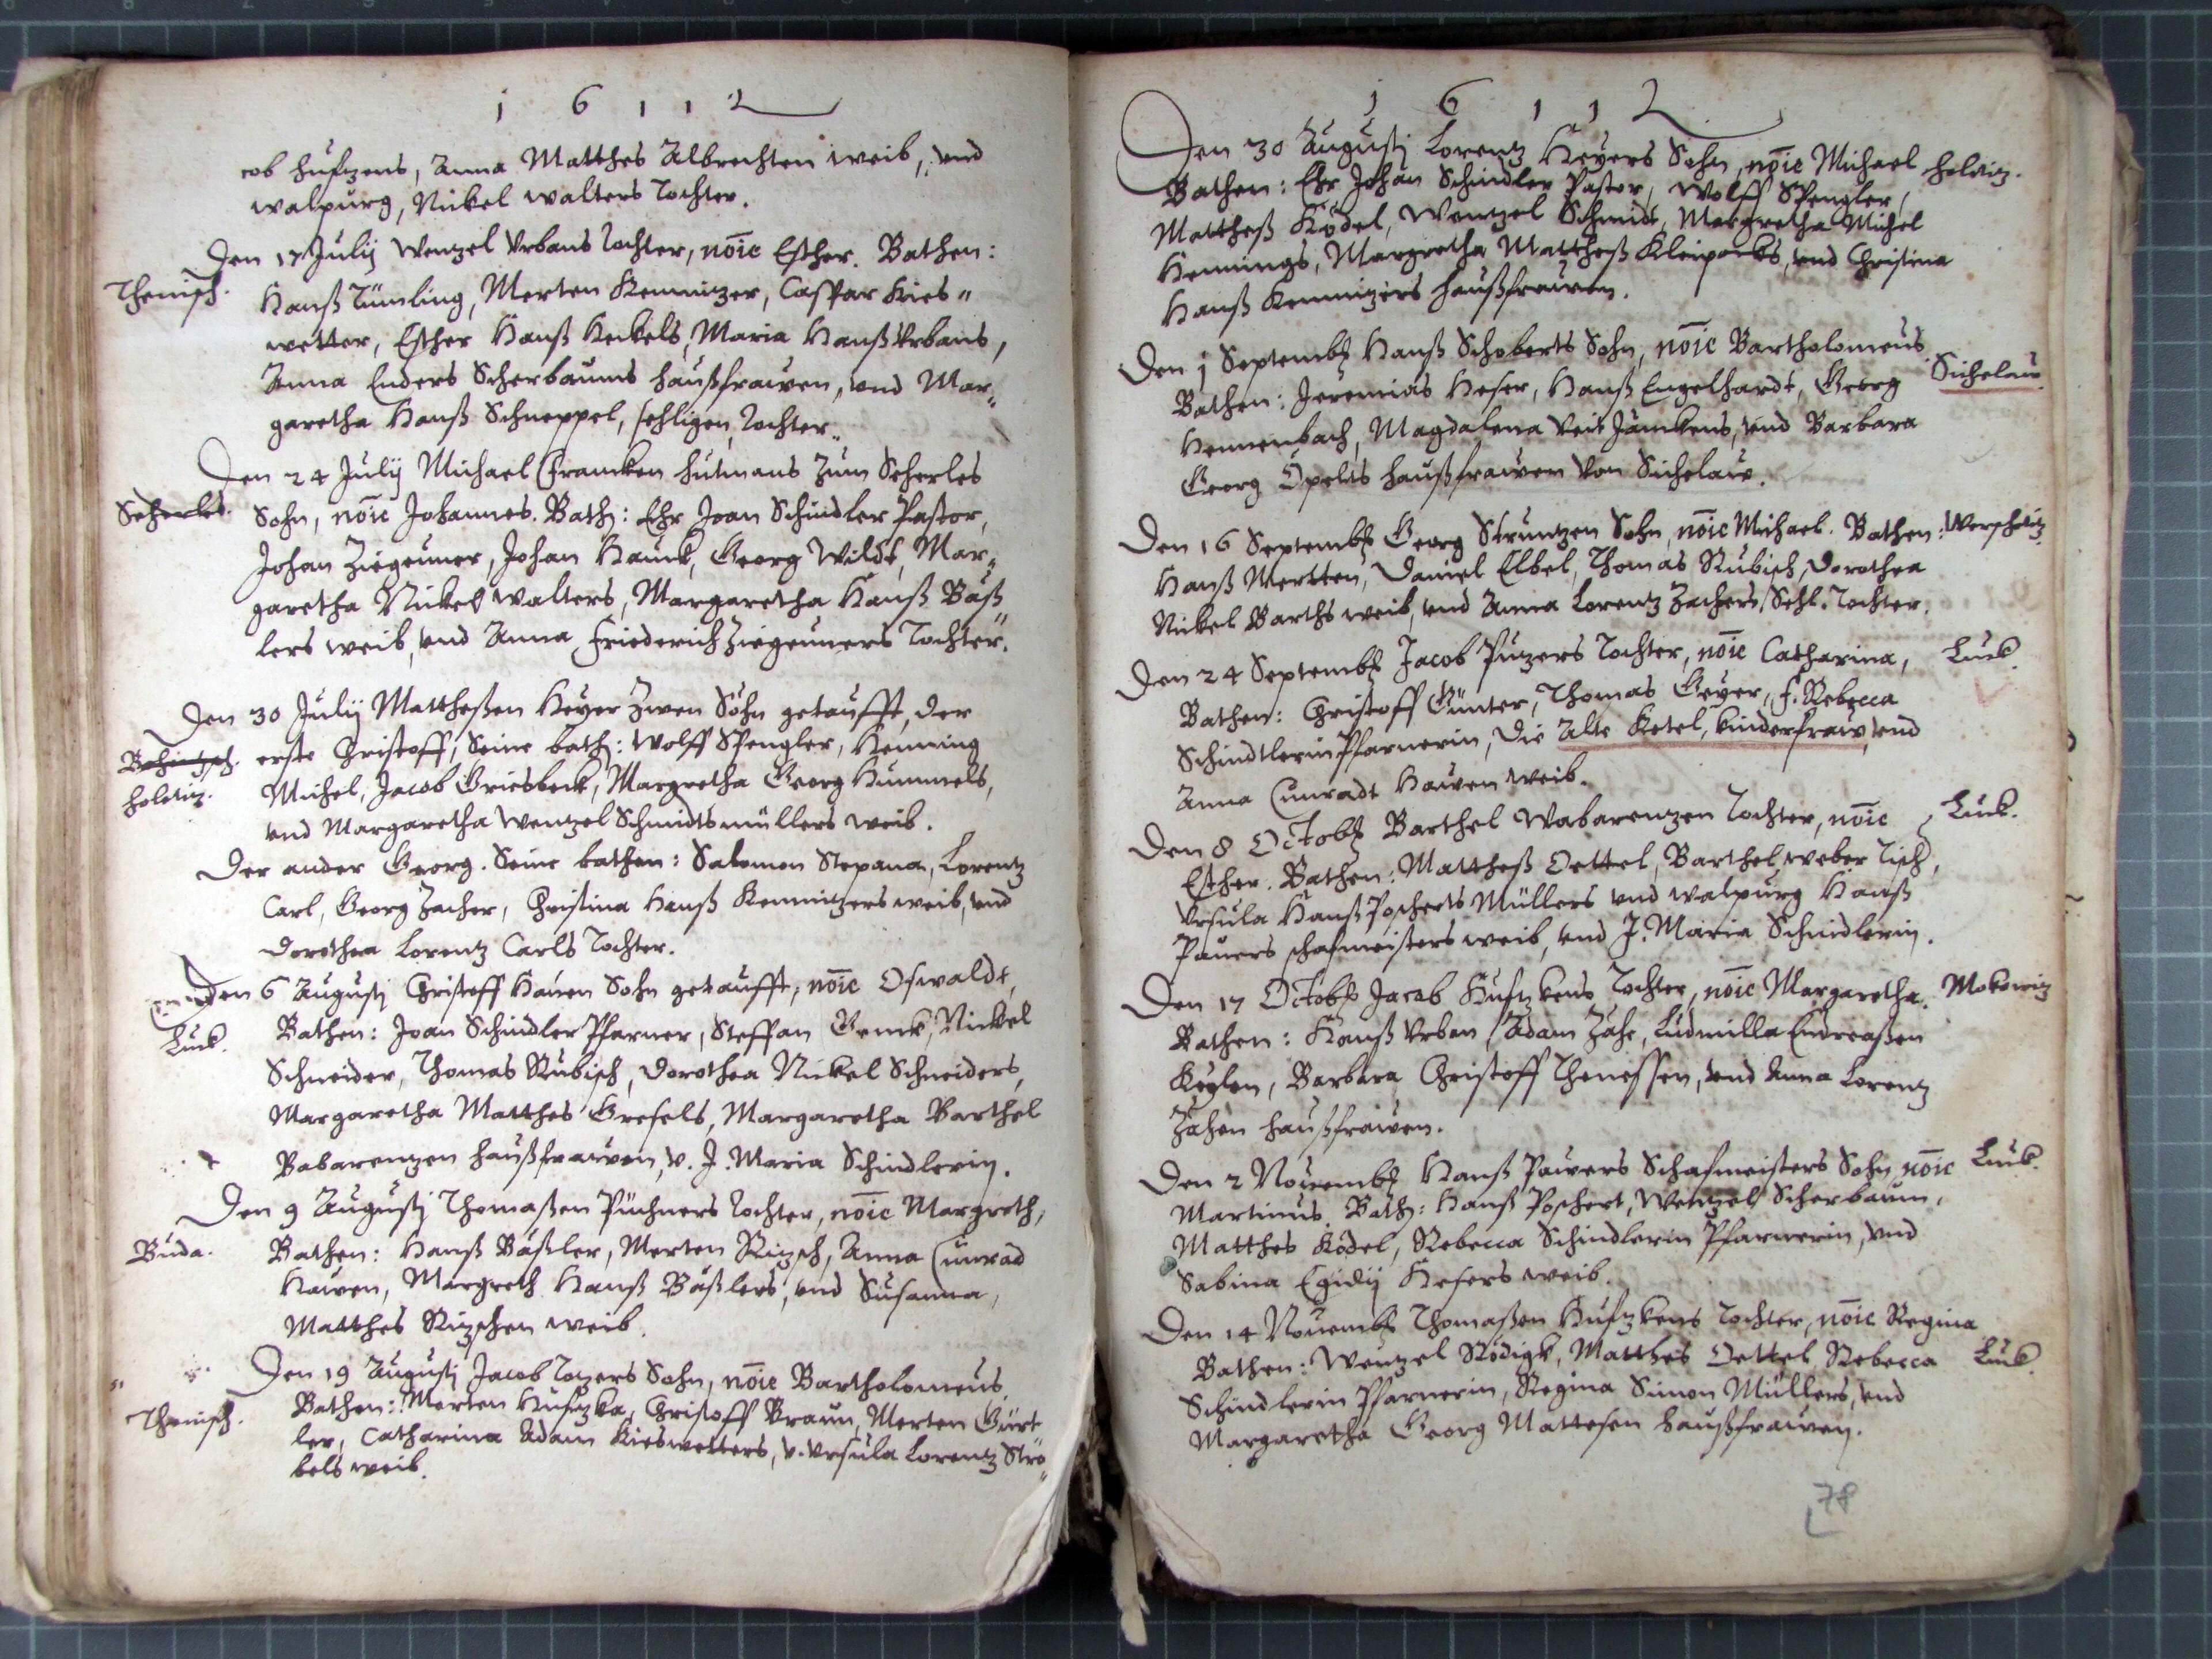 1 6 1 1 2
cob Hussens, Anna Matthes Albrechten weib, vnd
Walpurg, Nickel Walters Tochter.
Den 17 Julij Wenzel Vrbans Tochter, noie Esther. Bathen:
Thenisch.
Hanß Tümling, Merten Kemnitzer, Caspar Kies„
wetter, Esther Hanß Keckels, Maria Hanß Vrbans,
Anna Enders Scherbaums haußfrawen, vnd Mar„
garetha Hanß Schneppel, sehligen, Tochter.
Den 24 Julij Michael Francken Hutmans zum Scherles
Scherles.
Sohn, noie Johannes. Bath: Ehr Joan Schindler Pastor,
Johan Ziegeuner, Johan Hauck, Georg Wildt, Mar„
garetha Nickel Walters, Margaretha Hanß Bäß„
lers weib, vnd Anna Friederich Ziegeuners Tochter.
Den 30 Julij Mattheßen Heyer zwen Söhn getaufft, der
erste Christoff, Seine bath: Wolff Spengler, Henning
holewitz.
Michel, Jacob Griesbeck, Margretha Georg Hummels,
vnd Margaretha Wentzel Schmidts müllers weib.
Der ander Georg. Seine bathen: Salomon Stepana, Lorentz
Carl, Georg Zacher, Christina Hanß Kemnitzers weib, vnd
Dorothea Lorentz Carls Tochter.
Den 6 Augusti Christoff Hauen Sohn getaufft, noie Oswaldt,
Luck.
Bathen: Joan Schindler Pfarner, Steffan Genck, Nickel
Schneider, Thomas Rubisch, Dorothea Nickel Schneiders,
Margaretha Matthes Gresels, Margaretha Barthel
Babarentzen haußfrawen, v. J. Maria Schindlerin.
Den 9 Augusti Thomaßen Püchners Tochter, noie Margreth,
Buda.
Bathen: Hanß Bäßler, Merten Ritzsch, Anna Cunrad
Hawen, Margreth Hanß Bäßlers, vnd Susanna,
Matthes Ritzschen weib.
Den 19 Augusti Jacob Totzers Sohn, noie Bartholomeus,
Thenisch.
Bathen: Merten Husczka, Christoff Braun, Merten Gürt„
ler, Catharina Adam Kieswetters, v. Vrsula Lorentz Strö„
bels weib.
1 6 1 1 2
Den 30 Augusti Lorentz Heyers Sohn, noie Michael
holewitz.
Bathen: Ehr Johan Schindler Pastor, Wolff Spengler,
Mattheß Ködel, Wentzel Schmidt, Margretha Michel
Hennings, Margretha Mattheß Kleipocks, vnd Christina
Hanß Kemnitzers haußfrawen.
Den 1 Septemb. Hanß Schoberts Sohn, noie Bartholomeus
Sichelaw.
Bathen: Jeremias Heser, Hanß Engelhardt, Georg
Hennenbach, Magdalena Veit Jänckens, vnd Barbara
Georg Öpelts haußfrawen von Sichelaw.
Den 16 Septemb. Georg Struntzen Sohn, noie Michael. Bathen:
Werscheditz.
Hanß Mertten, Daniel Elbel, Thomas Rubisch, Dorothea
Nickel Barths weib, vnd Anna Lorentz Zachers Sehl. Tochter.
Den 24 Septemb. Jacob Putzers Tochter, noie Catharina,
Luck.
Bathen: Christoff Günter, Thomas Geyer, F. Rebecca
Schindtlerin Pfarnerin, die Alte Ketel, kinderfraw, vnd
Anna Cunradt Hawen weib.
Den 8 Octob. Barthel Wabarentzen Tochter, noie
Luck.
Esther. Bathen: Mattheß Oettel, Barthel weber Tisch,
Vrsula Hanß Poscherts Müllers vnd Walpurg Hanß
Pauers schafmeisters weib, vnd J. Maria Schindlerin.
Den 17 Octob. Jacob Husczkens Tochter, noie Margaretha.
Mokowitz
Bathen: Hanß Vrban, Adam Zahe, Ludmilla Endreaßen
Keylen, Barbara Christoff Thenessen, vnd Anna Lorentz
Zahen haußfrawen.
Den 2 Nouemb. Hanß Pawers Schafmeisters Sohn noie
Luck.
Martinus. Bath: Hanß Poschert, Wentzel Scherbaum,
Matthes Ködel, Rebecca Schindlerin Pfarnerin, vnd
Sabina Egidij Hesers weib.
Den 14 Nouemb. Thomaßen Husczkens Tochter, noie Regina
Luck.
Bathen: Wentzel Rödigk, Matthes Oettel, Rebecca
Schindlerin Pfarnerin, Regina Simon Müllers, vnd
Margaretha Georg Mattesen haußfrawen.
78